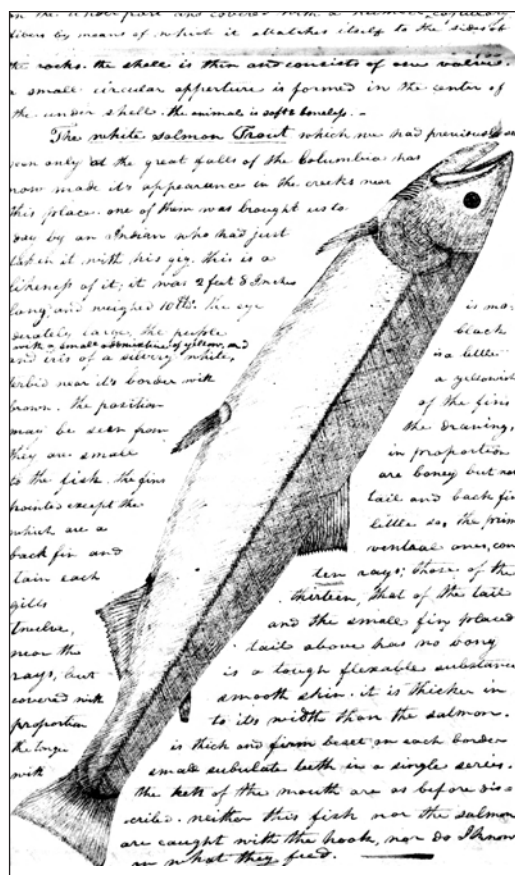 on the under part and covered with a
fibers by means of which it attatches itself to the sides of
the rocks. the shell is thin and consists of one valve.
a small circular apperture is formed in the center of
the under shell. the animal is soft & boneless. –
The white salmon Trout which we had previously
seen only at the great falls of the Columbia has
now made it's appearance in the creeks near
this place. one of them was brought us to
day by an Indian who had just
taken it with his gig. this is a
likeness of it; it was 2 feet 8 Inches
long, and weighed 10 lbs. the eye is mo-
derately large, the puple black
with a small admixture of yellow, and
and iris of a silvery white, is a little
terbid near it's border with a yellowish
brown. the position of the fins
may be seen from the drawing,
they are small in proportion
to the fish. the fins are boney but not
pointed except the tail and back fin
which are a little so, the prim
back fin and ventral ones, con
tain each ten rays; those of the
gills thirteen, that of the tail
twelve, and the small fin placed
near the tail above has no bony
rays, but is a tough flexable substance
covered with smooth skin. it is thicker in
proportion to it's width than the salmon.
the tonge is thick and firm beset on each border
with small subulate teeth in a single series.
the teeth of the mouth are as before dis-
cribed. neither this fish nor the salmon
are caught with the hook, nor do I know
on what they feed.